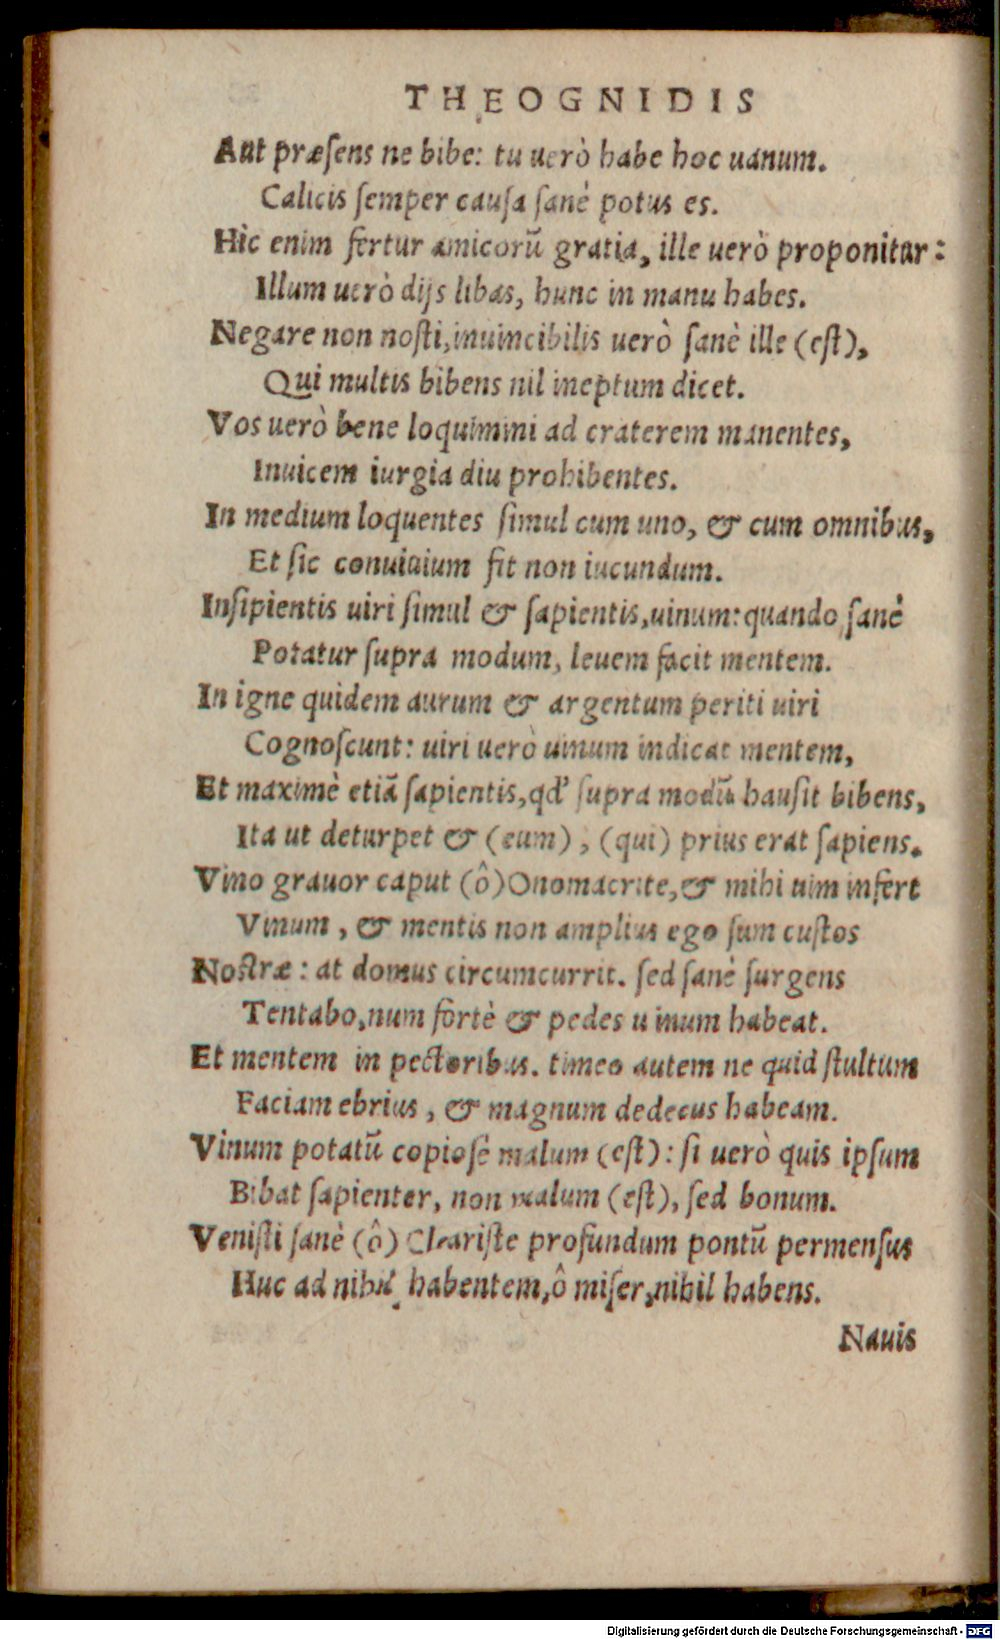 THEOGNIDIS
Aut præſens ne bibe: tu uerò habe hoc uanum.
Calicis ſemper cauſa ſanè potus es.
Hic enim fertur amicorũ gratia, ille uerò proponitur:
Illum uerò dijs libas, hunc in manu habes.
Negare non noſti, inuincibilis uerò ſanè ille (eſt),
Qui multis bibens nil ineptum dicet.
Vos uerò bene loquimini ad craterem manentes,
Inuicem iurgia diu prohibentes.
In medium loquentes ſimul cum uno, & cum omnibus,
Et ſic conuiuium fit non iucundum.
Inſipientis uiri ſimul & ſapientis, uinum: quando ſanè
Potatur ſupra modum, leuem facit mentem.
In igne quidem aurum & argentum periti uiri
Cognoſcunt: uiri uerò uinum indicat mentem,
Et maximè etiã ſapientis, qd' ſupra modũ hauſit bibens,
Ita ut deturpet & (eum), (qui) prius erat ſapiens.
Vino grauor caput (ô) Onomacrite, & mihi uim infert
Vinum, & mentis non amplius ego ſum cuſtos
Noſtræ: at domus circumcurrit. ſed ſanè ſurgens
Tentabo, num fortè & pedes uinum habeat.
Et mentem in pectoribus. timeo autem ne quid ſtultum
Faciam ebrius, & magnum dedecus habeam.
Vinum potatũ copioſè malum (eſt): ſi uerò quis ipſum
Bibat ſapienter, non malum (eſt), ſed bonum.
Veniſti ſanè (ô) Cleariſte profundum pontũ permenſus
Huc ad nihil habentem, ô miſer, nihil habens.
Nauis
Digitalisierung gefördert durch die Deutsche Forschungsgemeinschaft - DFG